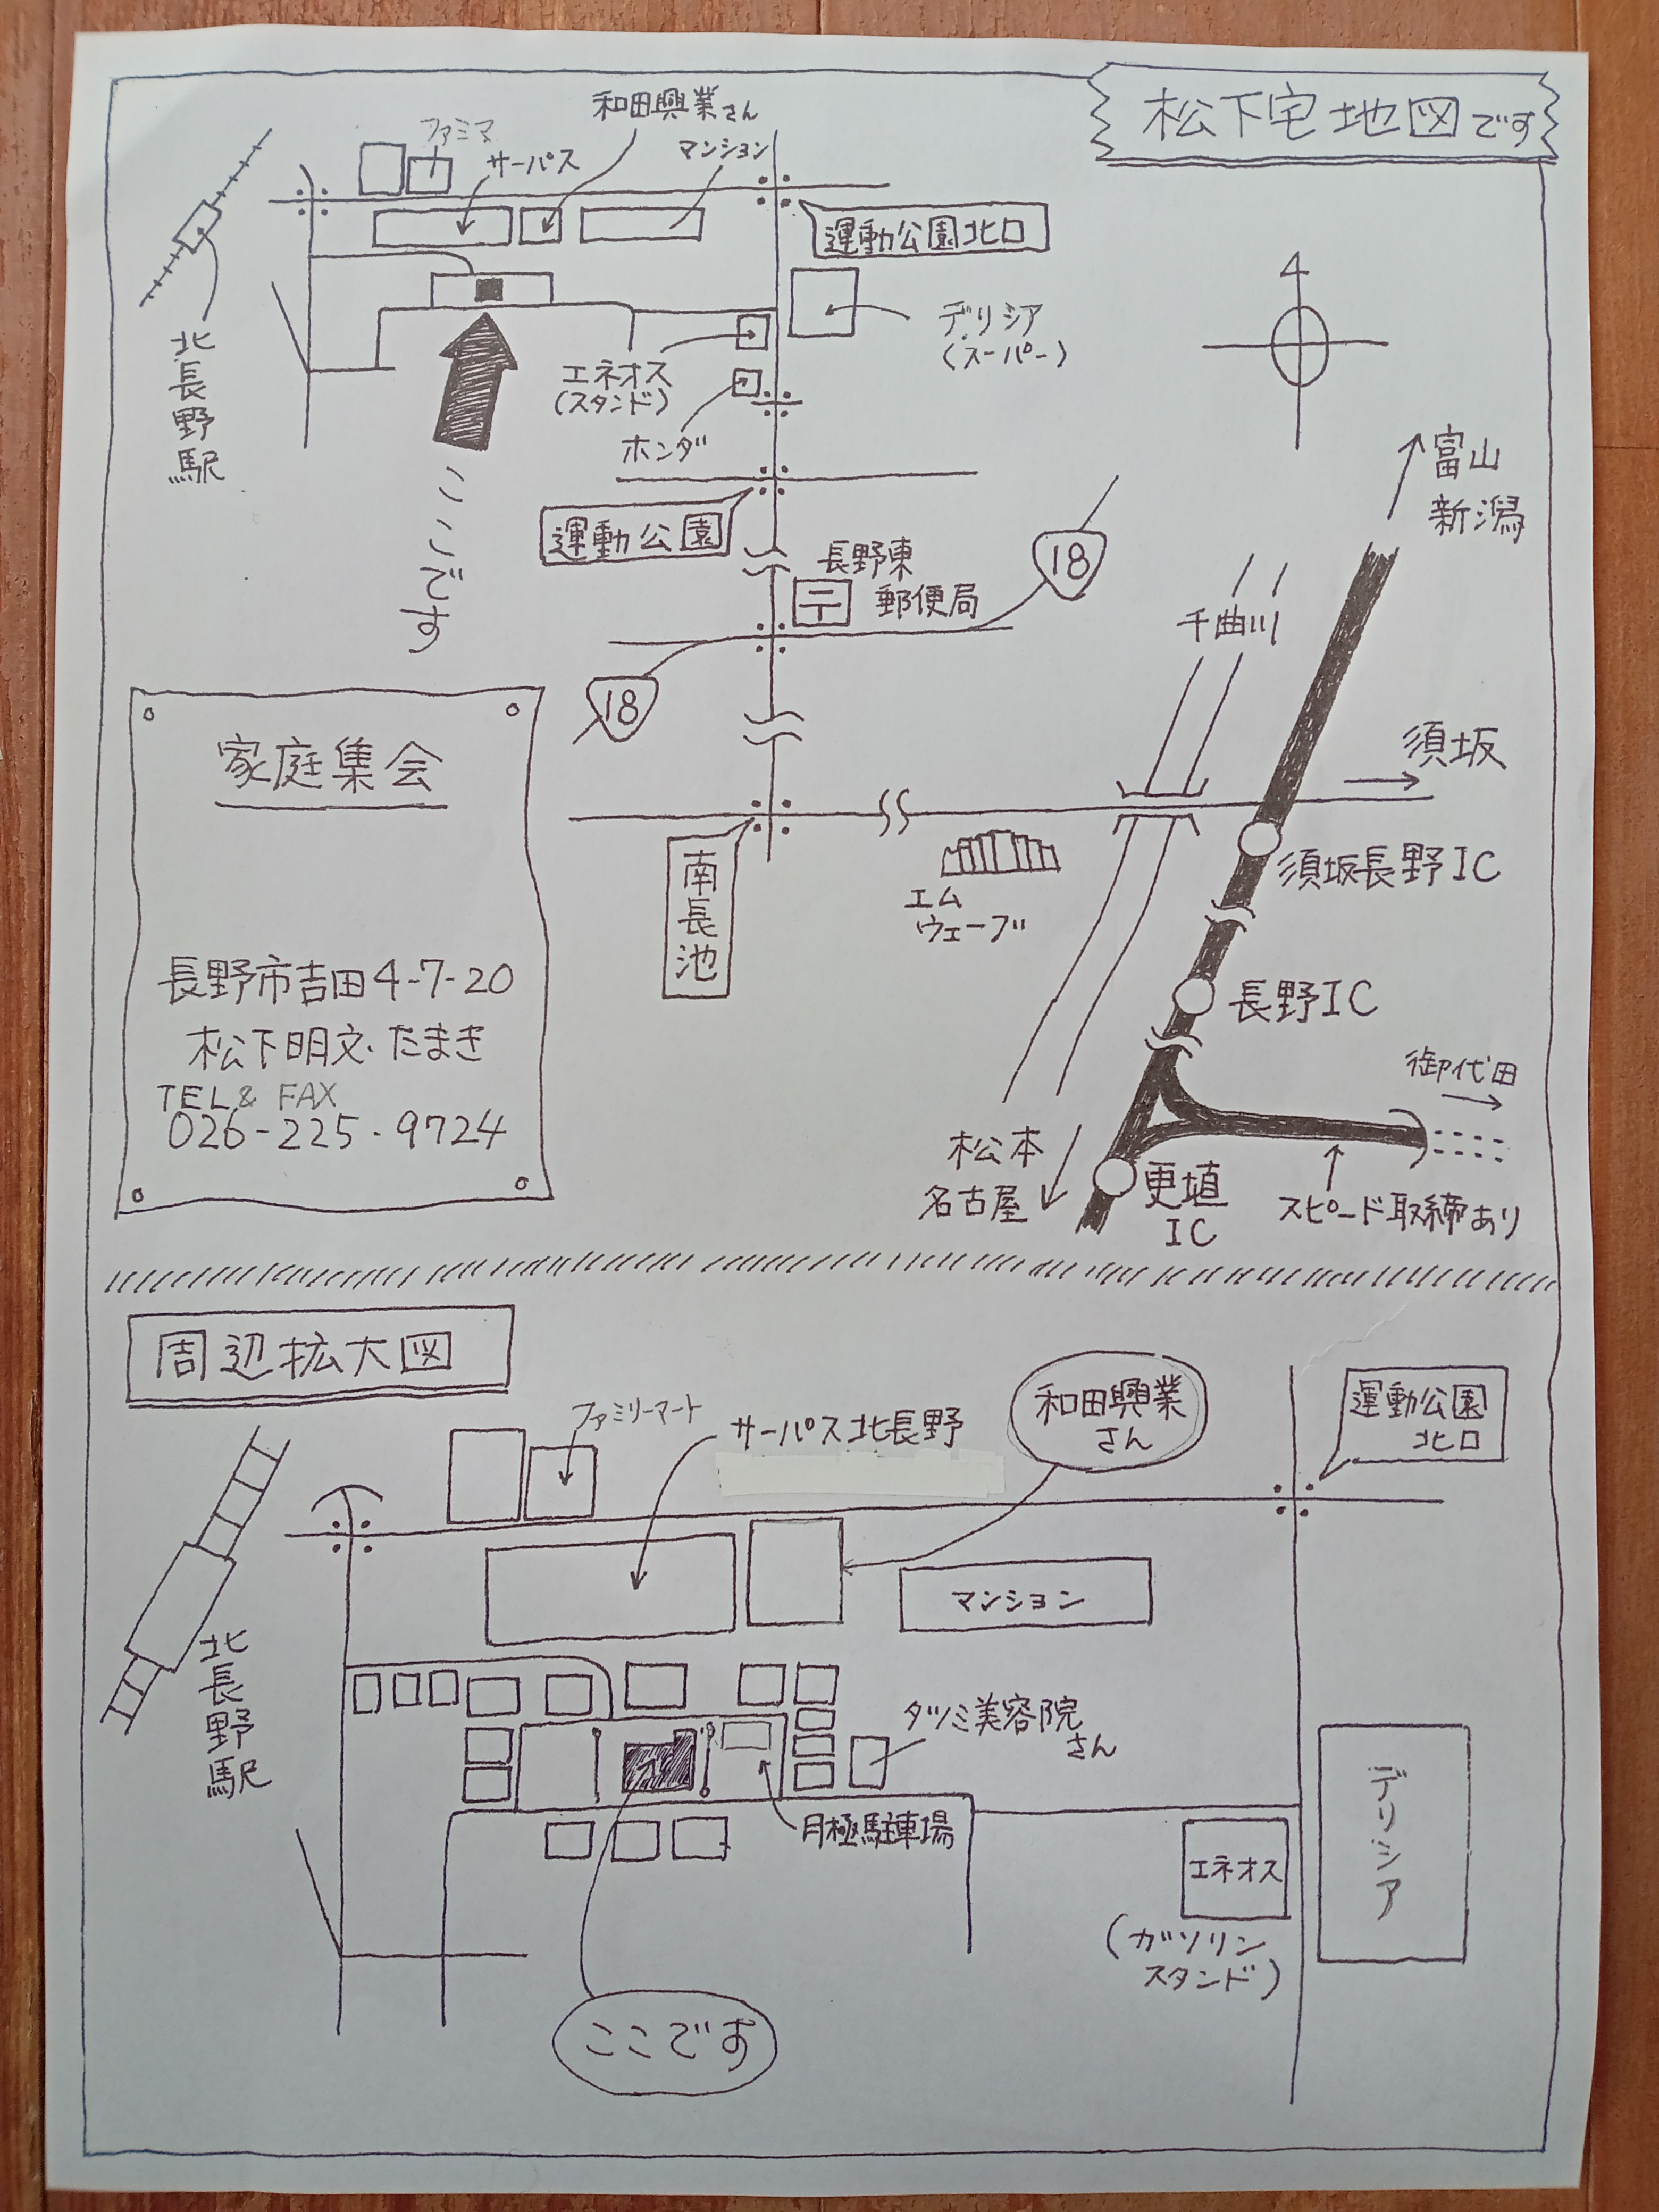 松下宅地図です
ファミマ
和田興業さん
サーパス
マンション
運動公園北口
北長野駅
デリシア
(スーパー)
エネオス
(スタンド)
ホンダ
ここです
運動公園
長野東
郵便局
〒
18
18
富山
新潟
千曲川
須坂
家庭集会
長野市吉田4-7-20
松下明文・たまき
TEL & FAX
026-225-9724
南長池
エム
ウェーブ
須坂長野IC
長野IC
御代田
松本
名古屋
更埴
IC
スピード取締あり
周辺拡大図
ファミリーマート
サーパス北長野
和田興業
さん
運動公園
北口
マンション
北長野駅
タツミ美容院
さん
月極駐車場
エネオス
(ガソリン
スタンド)
デリシア
ここです